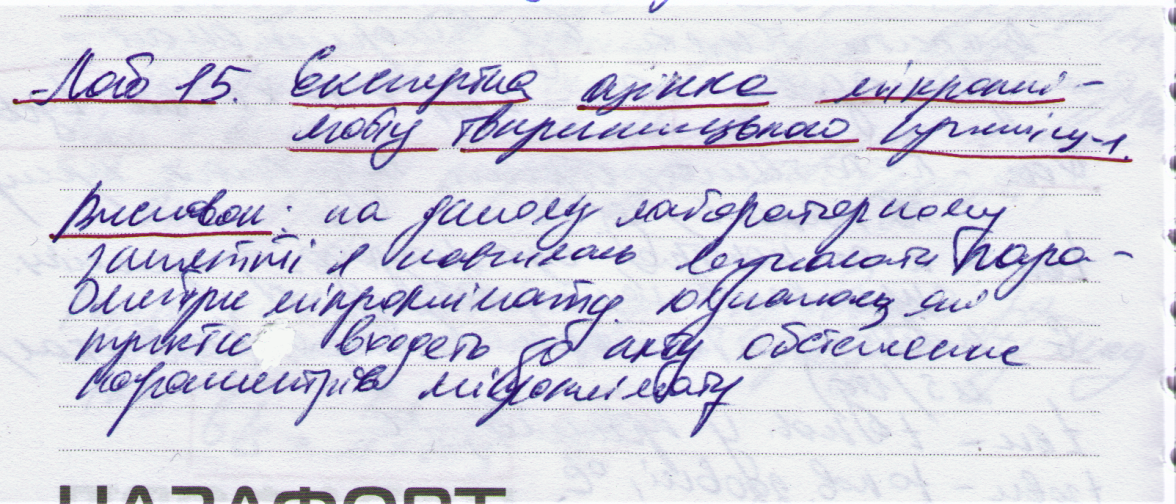 Лаб 15. Експертна оцінка мікроклі-
мату тваринницького приміщ-я.
Висновок: на даному лабораторному
занятті я навчилась визначати пара-
метри мікроклімату. які
пункти входять до акту обстеження
параметрів мікроклімату